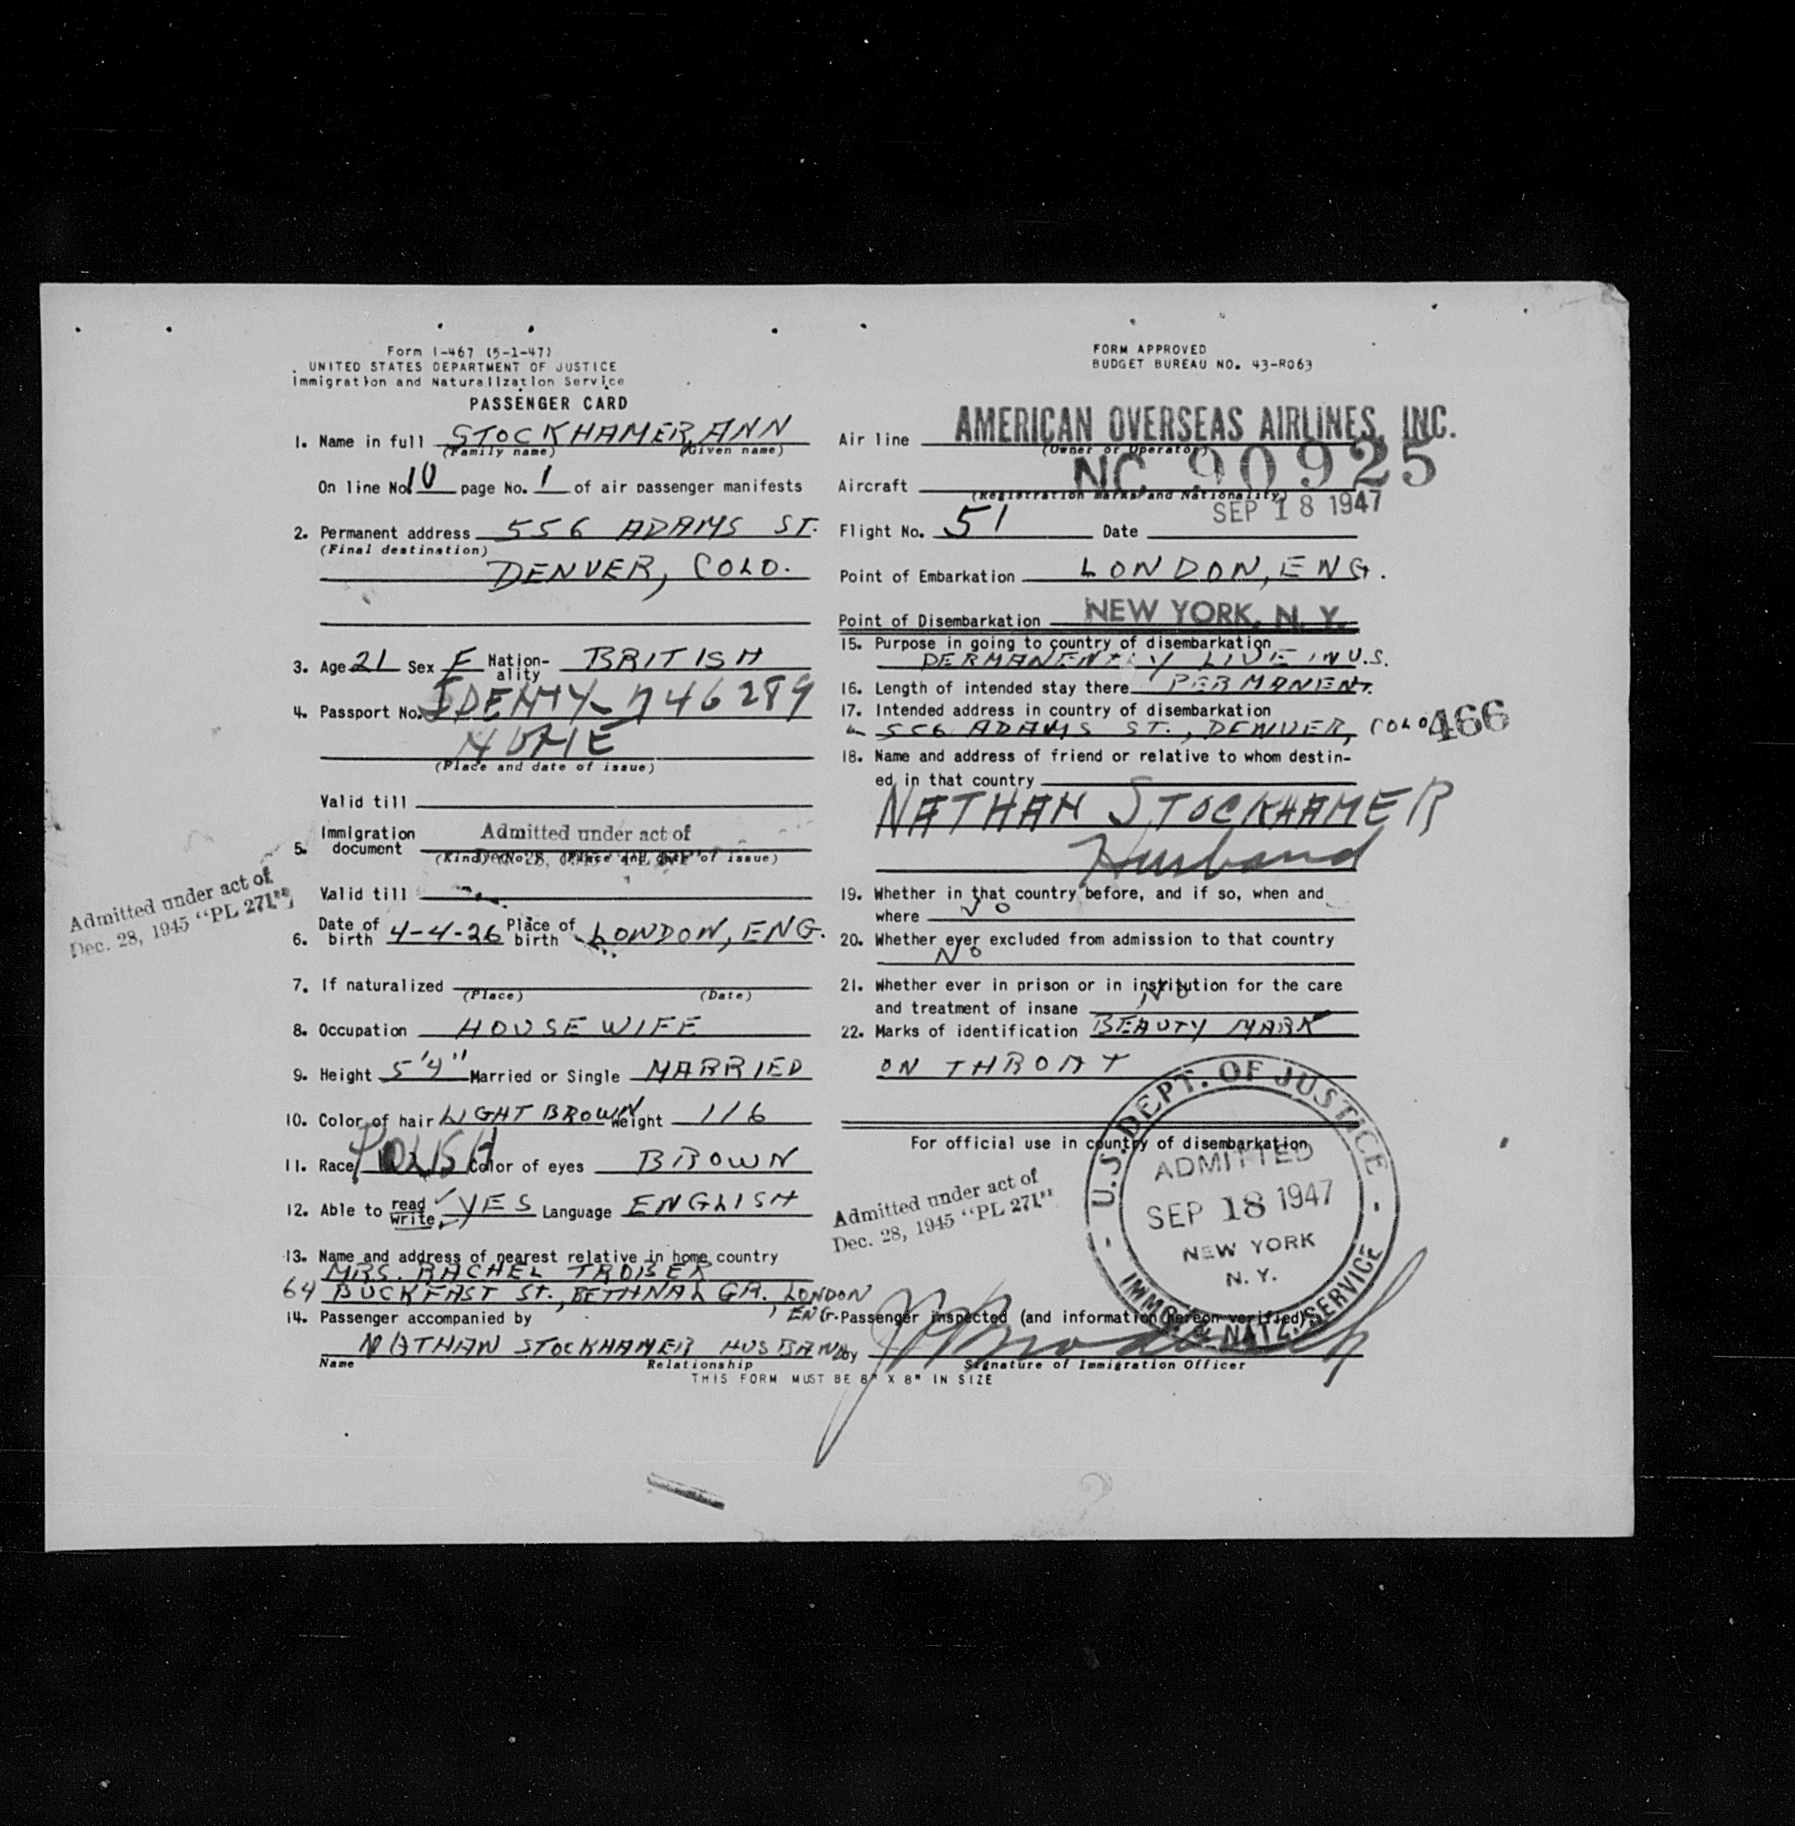 Form I-467 (5-1-47)
UNITED STATES DEPARTMENT OF JUSTICE
Immigration and Naturalization Service
PASSENGER CARD
1. Name in full STOCKHAMER, ANN
(Family name) (Given name)
On line No. 10 page No. 1 of air passenger manifests
2. Permanent address 556 ADAMS ST.
(Final destination)
DENVER, COLO.
3. Age 21 Sex F Nation-ality BRITISH
4. Passport No. IDENTY-746289
HOME
(Place and date of issue)
Valid till
5. Immigration document Admitted under act of
(Kind) (No.) (Place and date of issue)
Dec. 28, 1945 "PL 271"
Valid till
Admitted under act of
Dec. 28, 1945 "PL 271"
6. Date of birth 4-4-26 Place of birth LONDON, ENG.
7. If naturalized
(Place) (Date)
8. Occupation HOUSEWIFE
9. Height 5'4" Married or Single MARRIED
10. Color of hair LIGHT BROWN Weight 116
11. Race POLISH Color of eyes BROWN
12. Able to read write YES Language ENGLISH
13. Name and address of nearest relative in home country
MRS. RACHEL
64 BUCKFAST ST., BETHNAL GR. LONDON, ENG.
14. Passenger accompanied by
NATHAN STOCKHAMER HUSBAND
Name Relationship
THIS FORM MUST BE 8" X 8" IN SIZE
FORM APPROVED
BUDGET BUREAU NO. 43-R063
Air line AMERICAN OVERSEAS AIRLINES, INC.
(Owner or Operator)
Aircraft NC 90925
(Registration marks and Nationality)
Flight No. 51 Date SEP 18 1947
Point of Embarkation LONDON, ENG.
Point of Disembarkation NEW YORK, N. Y.
15. Purpose in going to country of disembarkation
PERMANENTLY LIVE IN U.S.
16. Length of intended stay there PERMANENT.
17. Intended address in country of disembarkation
556 ADAMS ST., DENVER, COLO
466
18. Name and address of friend or relative to whom destin-
ed in that country
NATHAN STOCKHAMER
Husband
19. Whether in that country before, and if so, when and
where NO
20. Whether ever excluded from admission to that country
NO
21. Whether ever in prison or in institution for the care
and treatment of insane NO
22. Marks of identification BEAUTY MARK
ON THROAT
For official use in country of disembarkation
Admitted under act of
Dec. 28, 1945 "PL 271"
U.S. DEPT. OF JUSTICE
ADMITTED
SEP 18 1947
NEW YORK
N. Y.
IMMG. & NATZ. SERVICE
Passenger inspected (and information hereon verified)
by
Signature of Immigration Officer